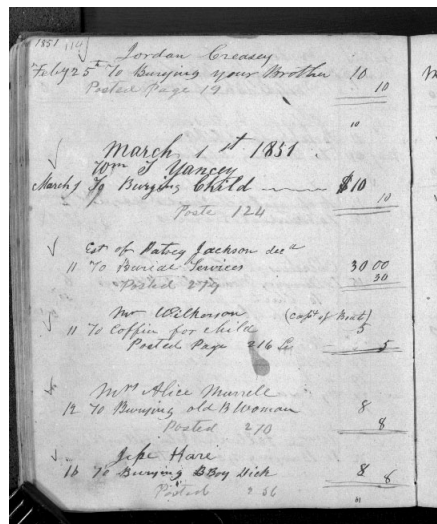 1851 114
Jordan Creasey
Feb'y 25th To Burying your Brother 10
Posted Page 19 10
10
March 1st 1851
Wm T Yancey
March 1 To Burying Child $10
Poste 124 10
Est of Patsey Jackson decd
11 To Burial Services 30 00
Posted 279 30
Mr Wilkerson (Capt of Boat)
11 To Coffin for child 5
Posted Page 216 5
Mrs Alice Murrell
12 To Burying old B Woman 8
Posted 270 8
Jesse Hare
16 To Burying B Boy Dick 8
Posted 256 8